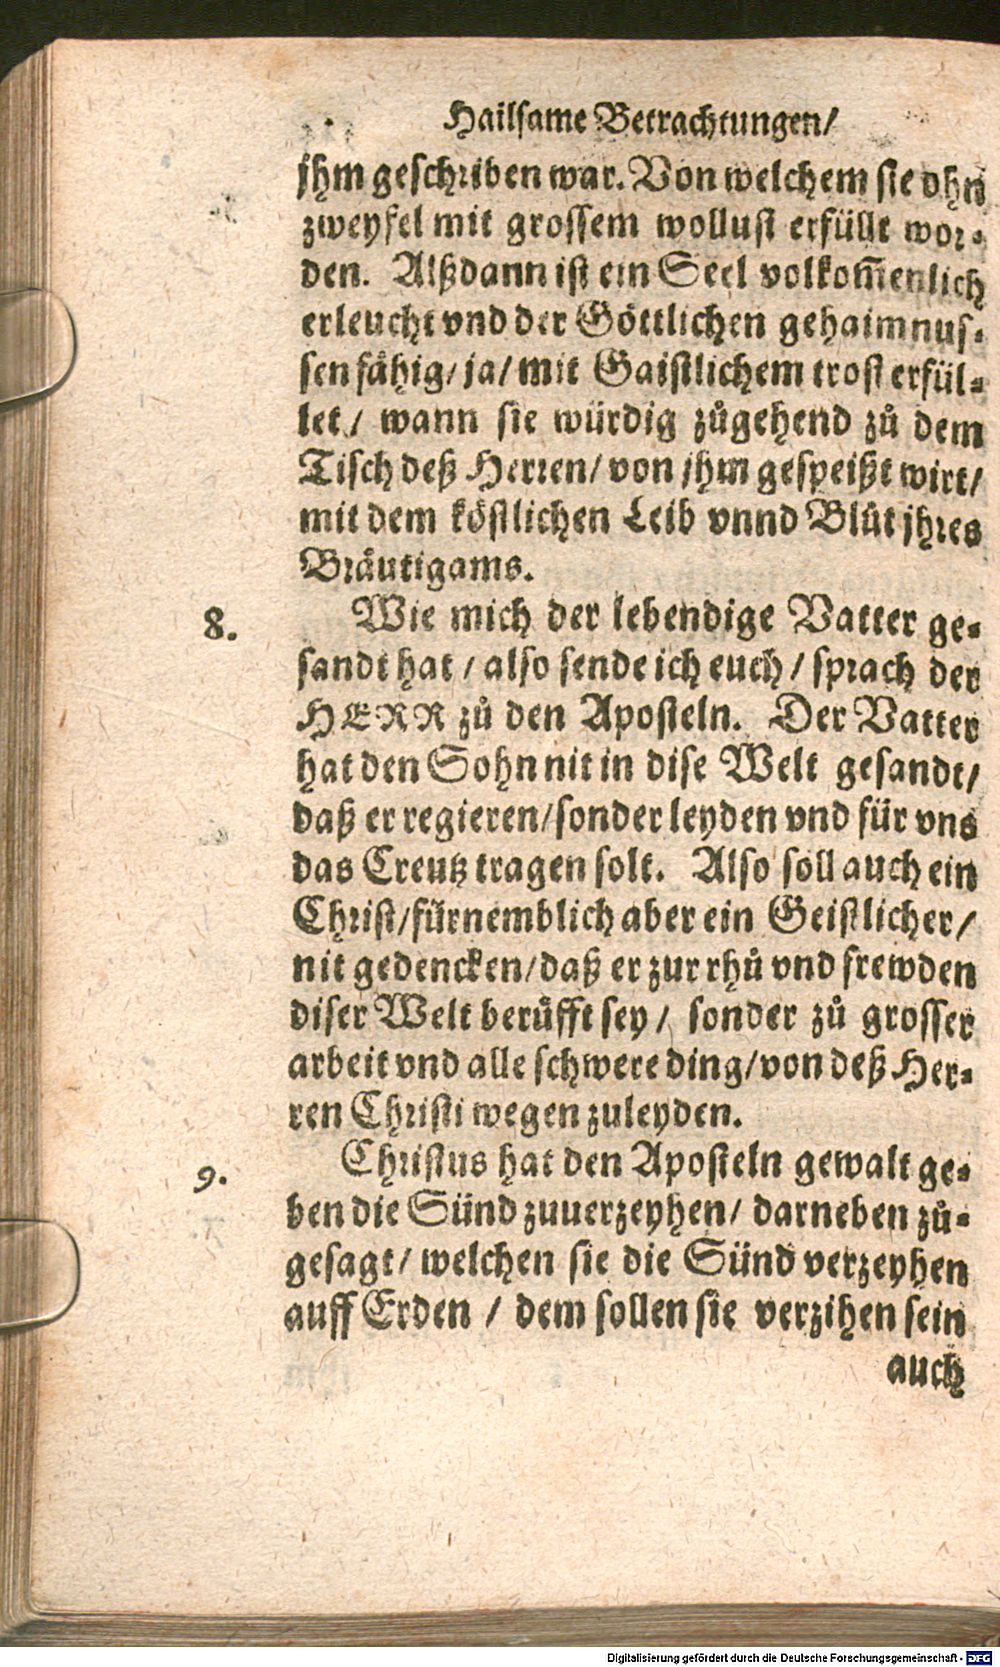 Hailsame Betrachtungen/
jhm geschriben war. Von welchem sie ohn
zweyfel mit grossem wollust erfüllt wor-
den. Alßdann ist ein Seel volkom̃enlich
erleucht vnd der Göttlichen gehaimnus-
sen fähig/ ja/ mit Gaistlichem trost erfül-
let/ wann sie würdig zůgehend zů dem
Tisch deß Herren/ von jhm gespeißt wirt/
mit dem köstlichen Leib vnnd Blůt jhres
Bräutigams.
8. Wie mich der lebendige Vatter ge-
sandt hat / also sende ich euch / sprach der
HERR zů den Aposteln. Der Vatter
hat den Sohn nit in dise Welt gesandt/
daß er regieren/ sonder leyden vnd für vns
das Creutz tragen solt. Also soll auch ein
Christ/ fürnemblich aber ein Geistlicher/
nit gedencken/ daß er zur rhů vnd frewden
diser Welt berůfft sey/ sonder zů grosser
arbeit vnd alle schwere ding/ von deß Her-
ren Christi wegen zuleyden.
9. Christus hat den Aposteln gewalt ge-
ben die Sünd zuuerzeyhen/ darneben zů-
gesagt/ welchen sie die Sünd verzeyhen
auff Erden / dem sollen sie verzihen sein
auch
Digitalisierung gefördert durch die Deutsche Forschungsgemeinschaft - DFG